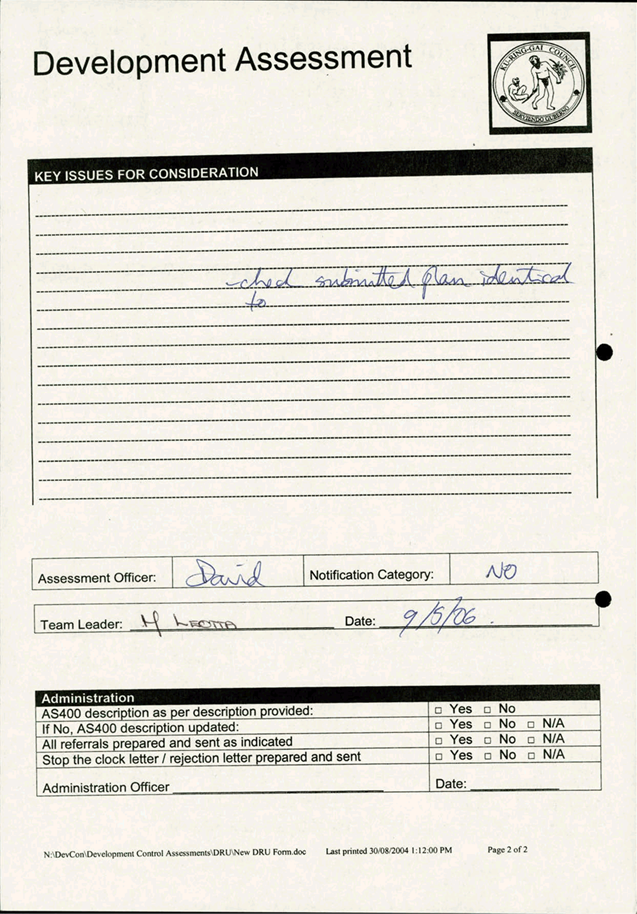 Development Assessment
KU-RING-GAI COUNCIL
SERVIENDO GUBERNO
KEY ISSUES FOR CONSIDERATION
- ched submitted plan identical
to
Assessment Officer: David Notification Category: NO
Team Leader: M LEOTTA Date: 9/5/06.
Administration
AS400 description as per description provided: □ Yes □ No
If No, AS400 description updated: □ Yes □ No □ N/A
All referrals prepared and sent as indicated □ Yes □ No □ N/A
Stop the clock letter / rejection letter prepared and sent □ Yes □ No □ N/A
Administration Officer Date:
N:\DevCon\Development Control Assessments\DRU\New DRU Form.doc Last printed 30/08/2004 1:12:00 PM Page 2 of 2